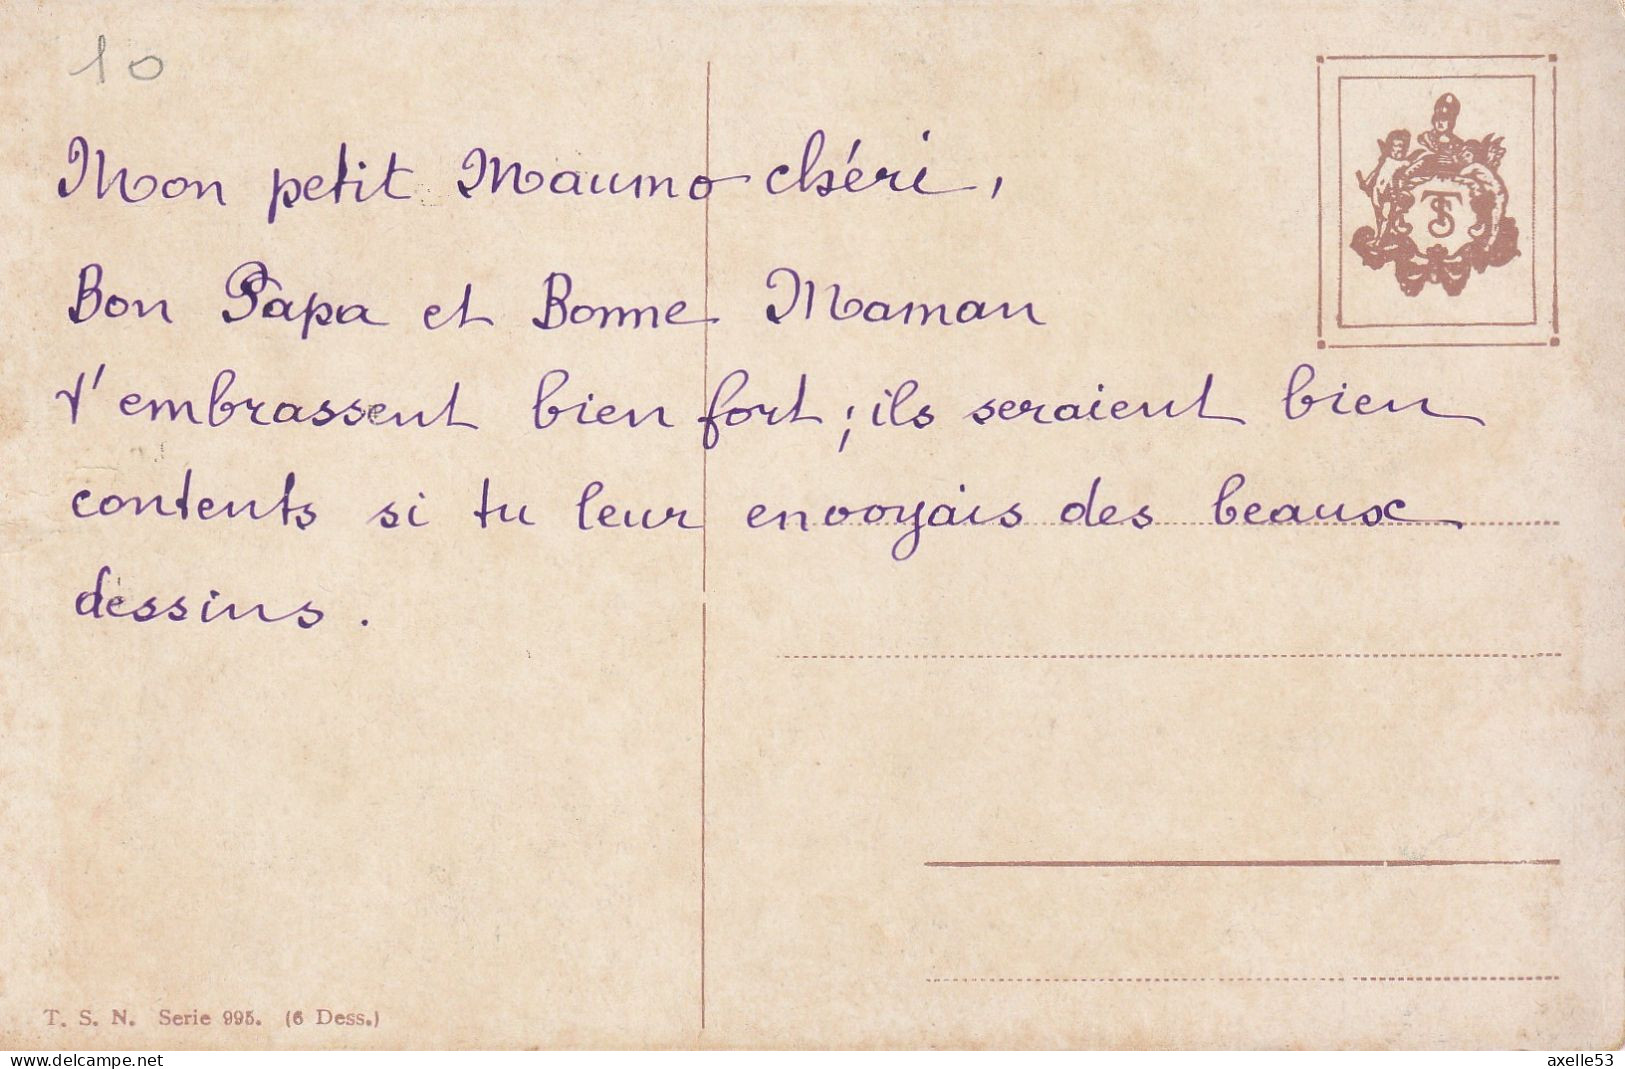 10
Mon petit Maumo chéri,
Bon Papa et Bonne Maman
t'embrassent bien fort ; ils seraient bien
contents si tu leur envoyais des beaux
dessins.
TS
T. S. N. Serie 995. (6 Dess.)
www.delcampe.net
axelle53